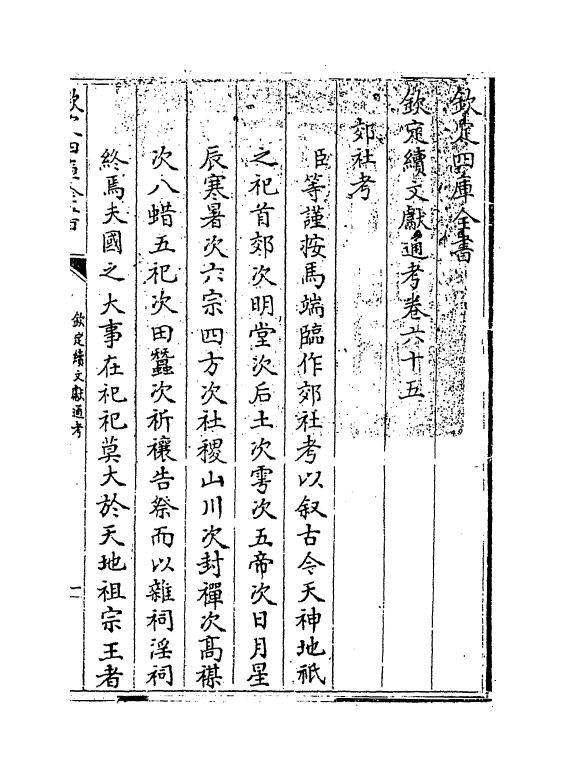 欽定四庫全書
欽定續文獻通考卷六十五
郊社考
臣等謹按馬端臨作郊社考以叙古今天神地祇
之祀首郊次明堂次后土次雩次五帝次日月星
辰寒暑次六宗四方次社稷山川次封禪次高禖
次八蜡五祀次田蠶次祈禳告祭而以雜祠淫祠
終焉夫國之大事在祀祀莫大於天地祖宗王者
欽定四庫全書
欽定續文獻通考
一